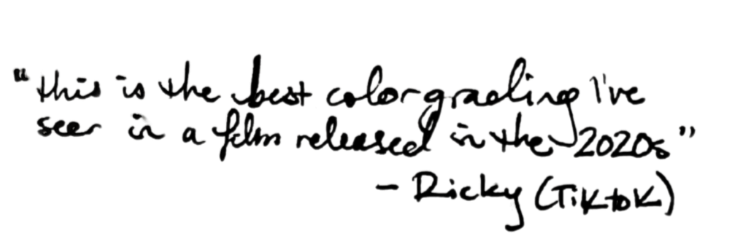 "this is the best color grading I've
seen in a film released in the 2020s"
- Ricky (TikTok)